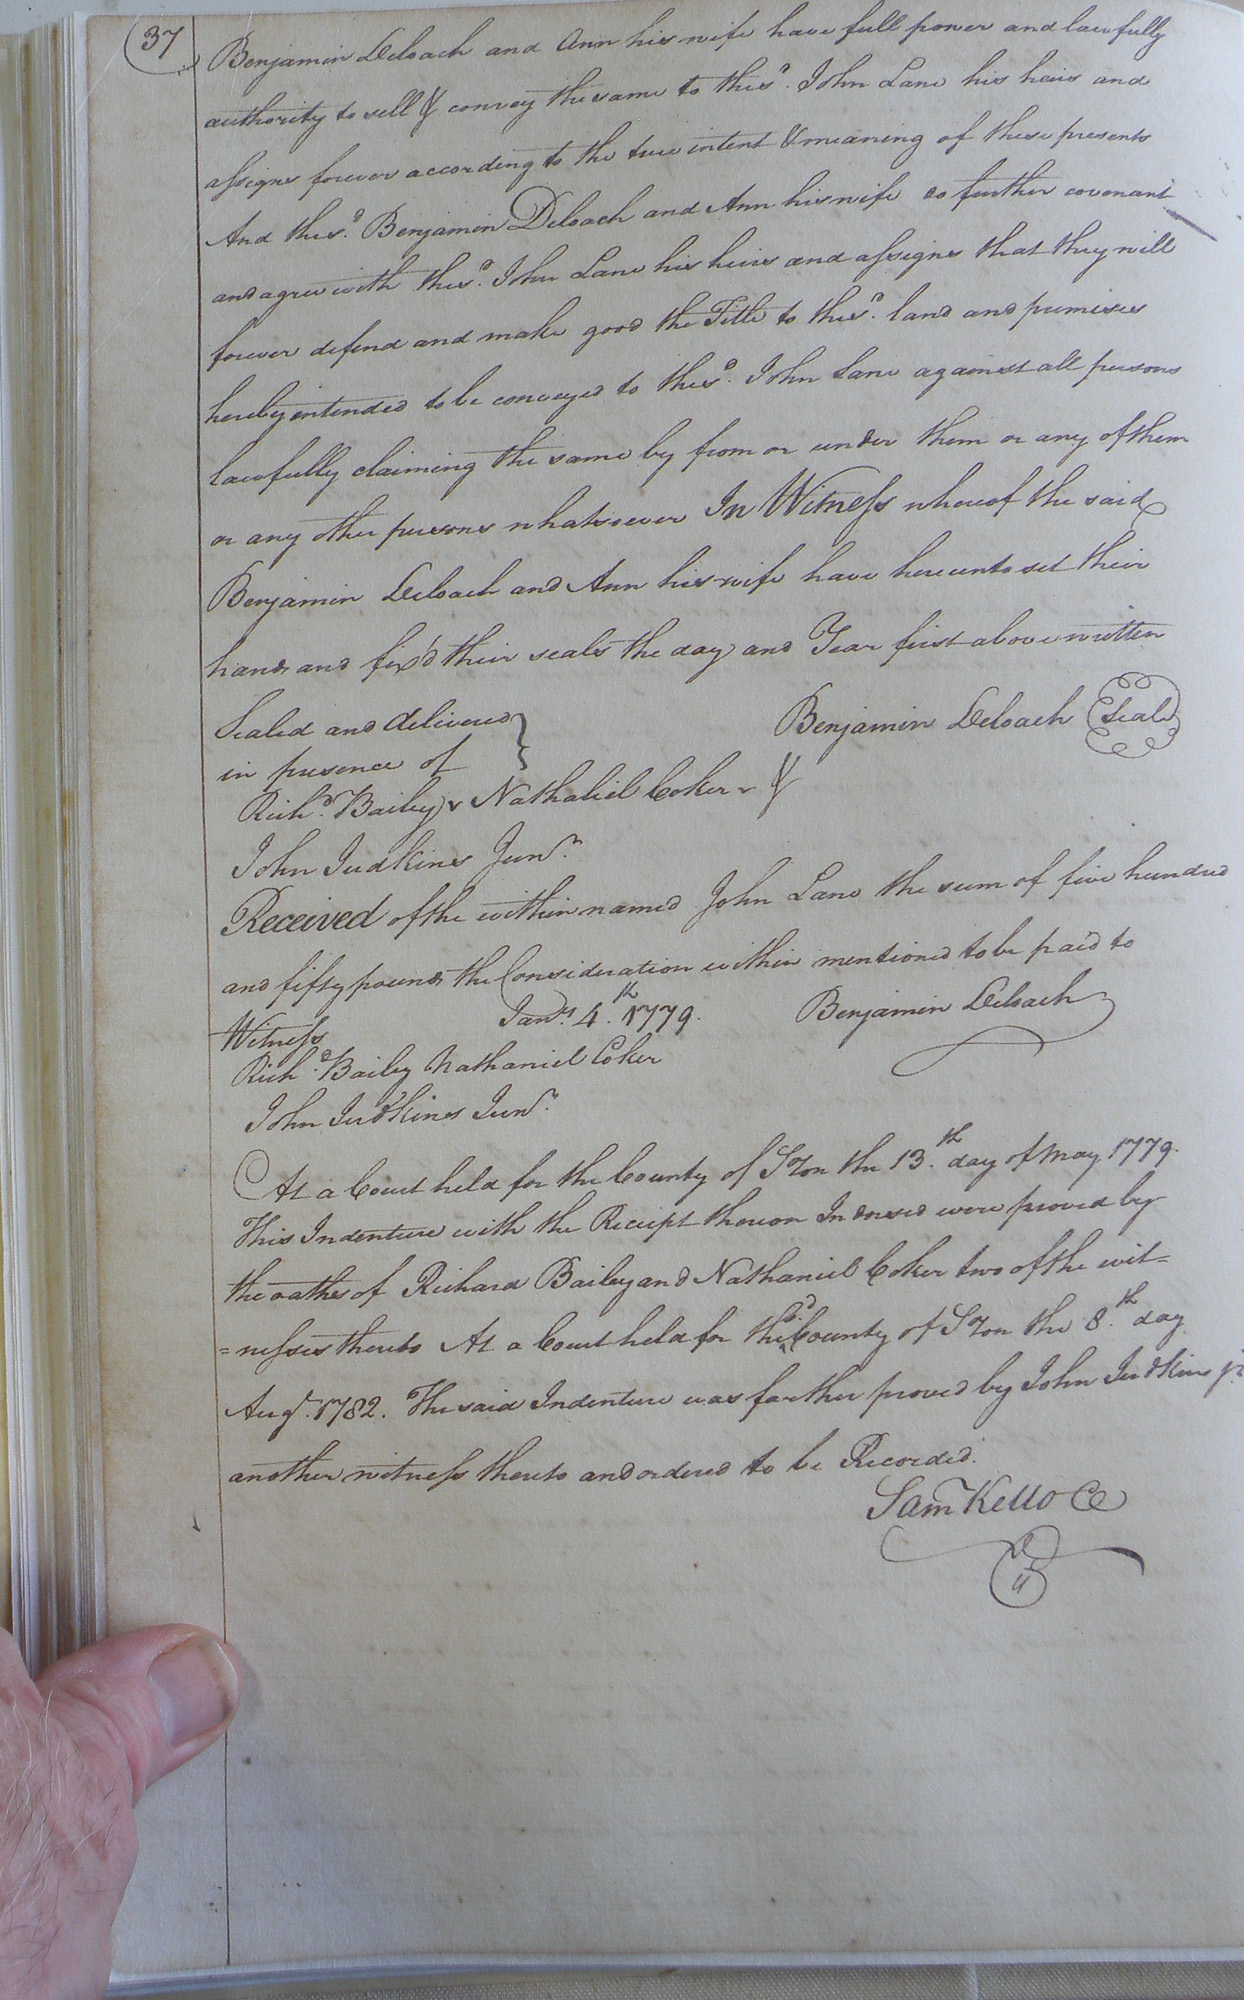 37
Benjamin Deloach and Ann his wife have full power and lawfully
authority to sell & convey the same to the sd. John Lane his heirs and
assigns forever according to the true intent & meaning of these presents
And the sd. Benjamin Deloach and Ann his wife do further covenant
and agree with the sd. John Lane his heirs and assigns that they will
forever defend and make good the Title to the sd. land and premises
hereby intended to be conveyed to the sd. John Lane against all persons
lawfully claiming the same by from or under them or any of them
or any other persons whatsoever In Witness whereof the said
Benjamin Deloach and Ann his wife have hereunto set their
hands and fix'd their seals the day and Year first above written
Sealed and delivered
Benjamin Deloach Seal
in presence of
Richd. Bailey Nathaliel Coker &
John Judkins Junr.
Received of the within named John Lane the sum of five hundred
and fifty pounds the Consideration within mentioned to be paid to
Witness Jany. 4th. 1779. Benjamin Deloach
Richd. Bailey Nathaniel Coker
John Judkins Junr.
At a Court held for the County of Soton the 13th. day of May 1779.
This Indenture with the Receipt thereon Indorsed were proved by
the oaths of Richard Bailey and Nathaniel Coker two of the wit=
=nesses thereto At a Court held for the sd. County of Soton the 8th. day
Augt. 1782. The said Indenture was farther proved by John Judkins jr.
another witness thereto and ordered to be Recorded.
Saml Kello C